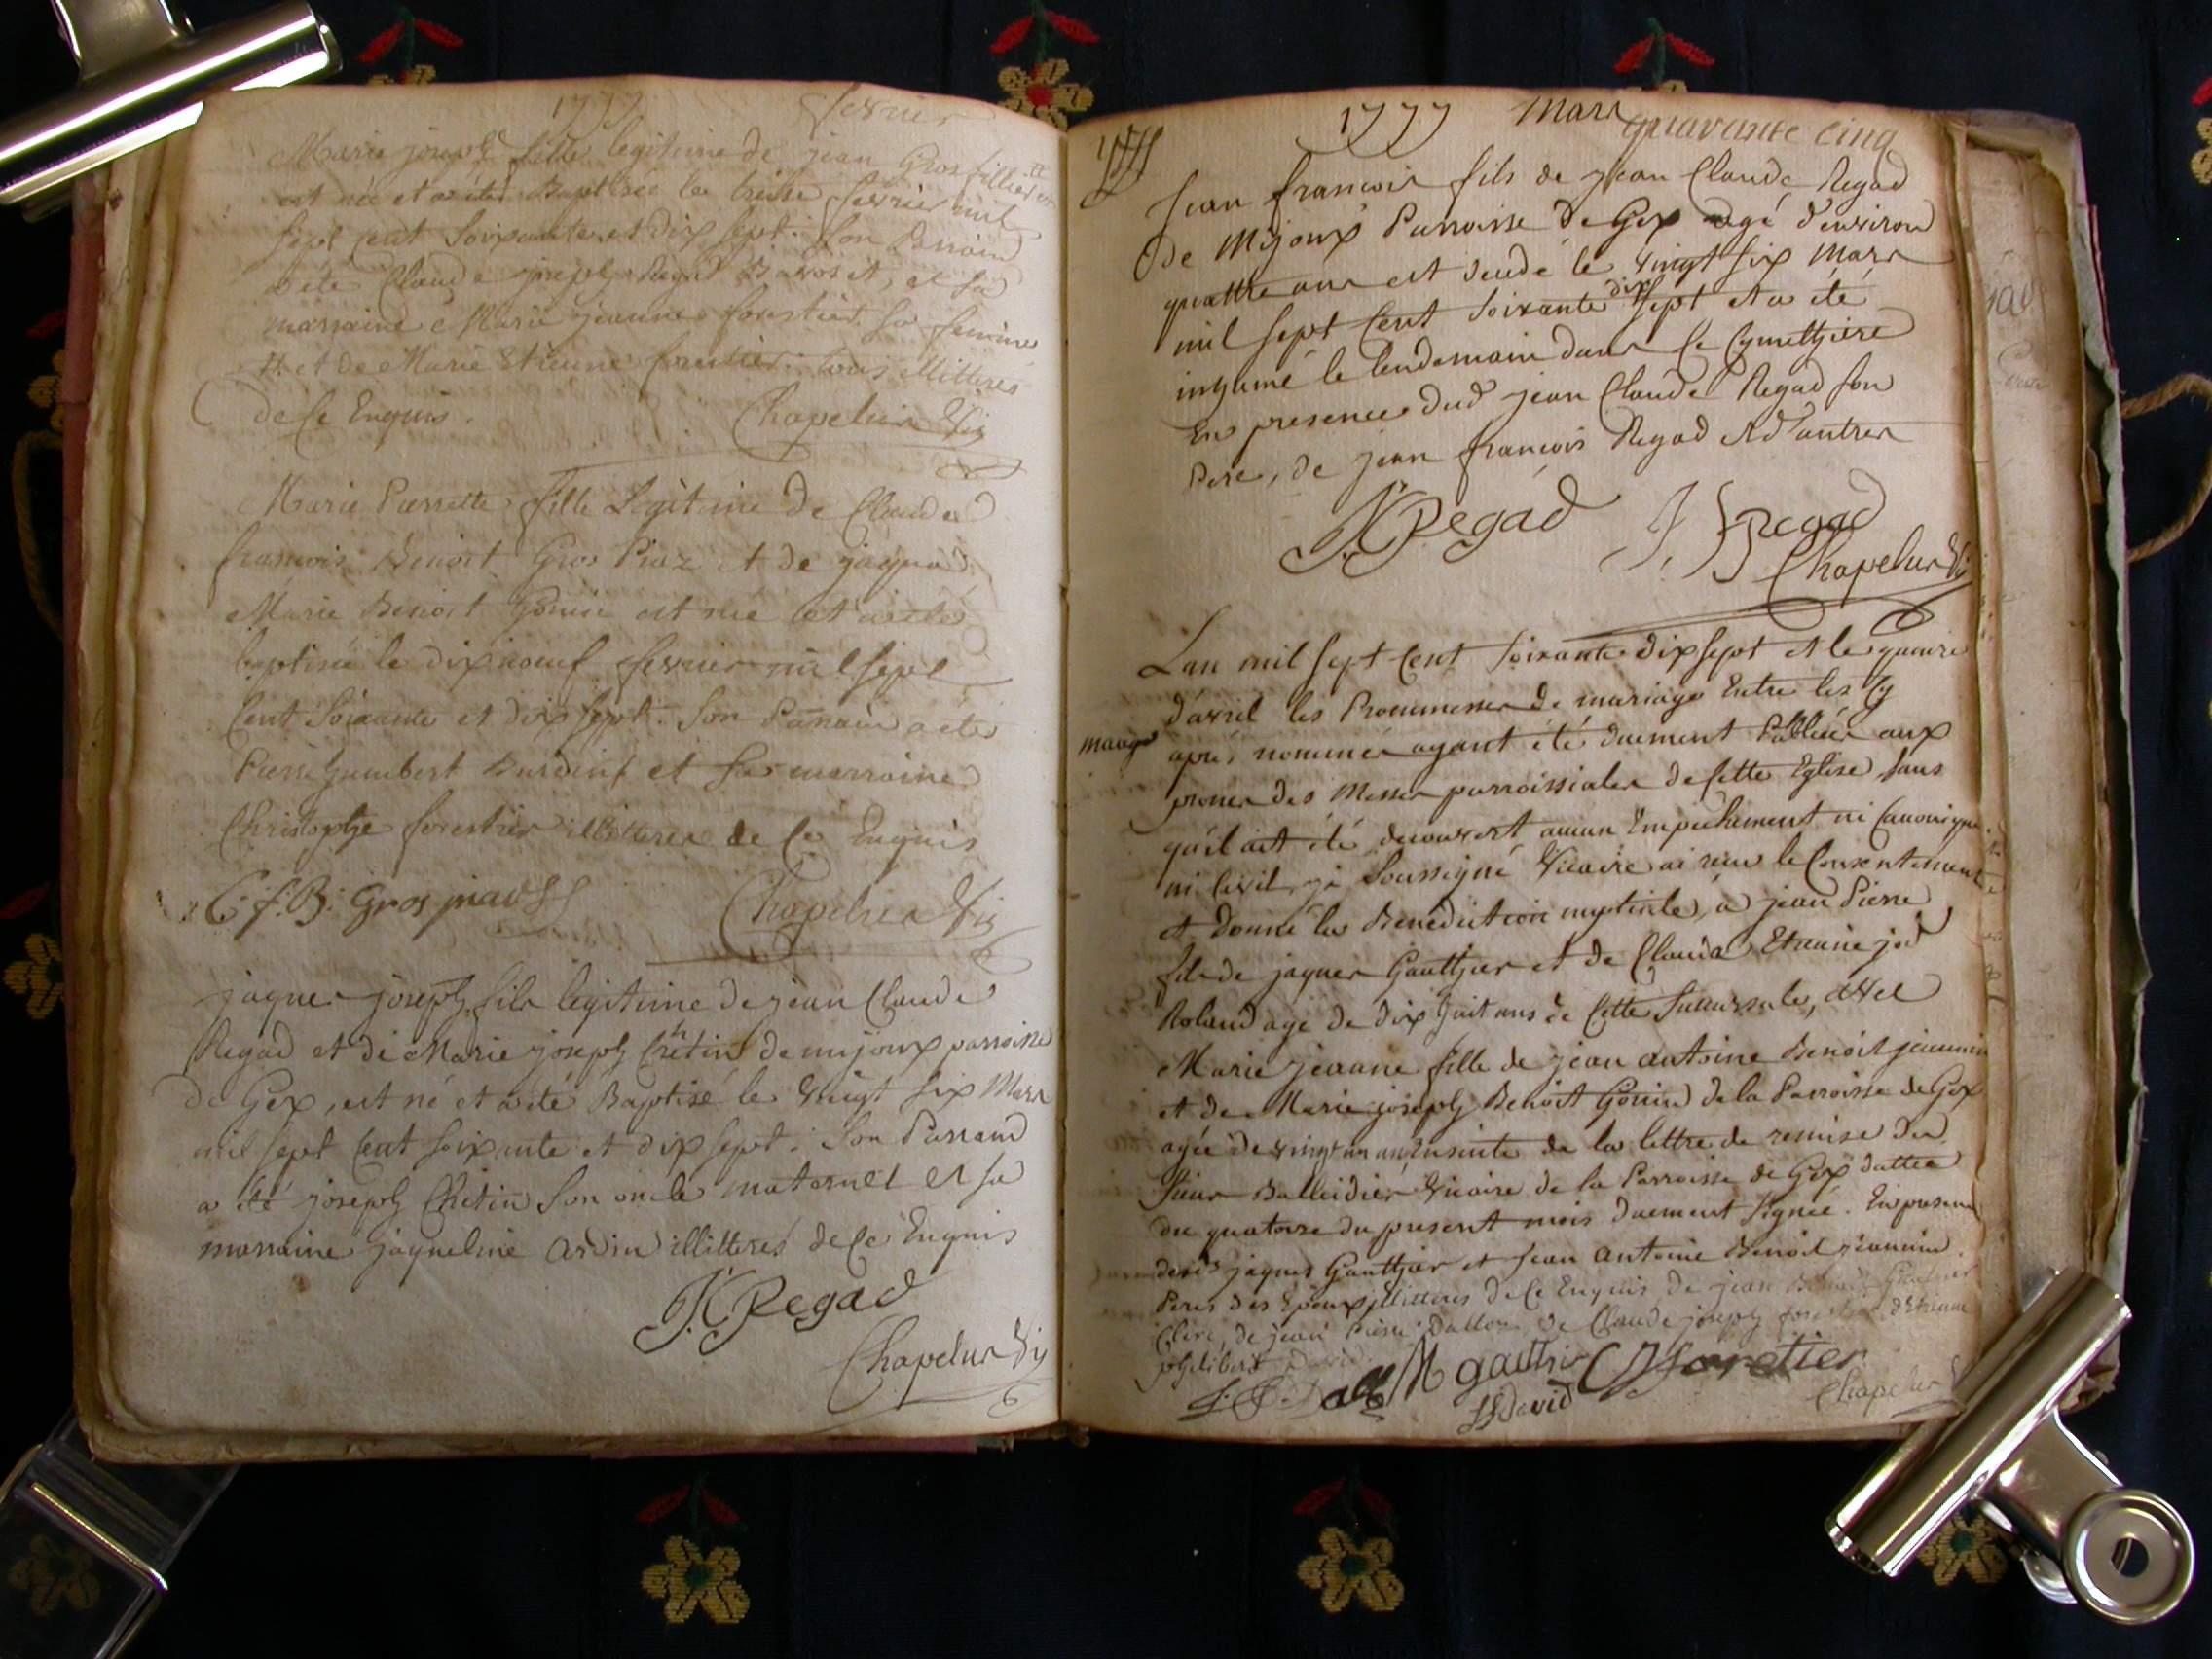 1777 fevrier
Marie joseph fille legitime de jean Grosfillier #
est née et a été Baptisée le treise fevrier mil
sept cent soixante et dix sept. Son Parrain
a été Claude joseph Regad Baroset, et sa
marraine Marie jeanne forestier sa femme
# et de Marie Etienne forestier tous illitteres
de ce Enquis. Chapelier Vic
Marie Pierrette fille Legitime de Claude
francois Benoit Gros Piaz et de jaqua
Marie Benoit Gonin est née et a été
baptisée le dix noeuf fevrier mil sept
Cent Soixante et dix sept. Son Parrain a été
Pierre humbert Burdinf et sa marraine
Christophe forestier illitteres de ce Enquis
C. f. B. Gros piaz Chapelier Vic
jaques joseph fils legitime de jean Claude
Regad et de Marie joseph Chrétin de mijoux parroisse
de Gex, est né et a été Baptisé le vingt six Mars
mil sept cent soixante et dix sept. Son Parrain
a été joseph Chretin Son oncle maternel et sa
marraine jaqueline ardin illitterés de ce Enquis
J.C Regad
Chapelier Vic
1777 Mars quarante cinq
Jean francois fils de jean Claude Regad
de Mijoux Parroisse de Gex agé d'environ
quattre ans est decedé le vingt six Mars
mil sept Cent soixante dix sept et a été
inhumé le lendemain dans le Cymettiere
En presence dud jean Claude Regad son
Pere, de jean francois Regad et d'autres
J.C Regad J f Regad
Chapelier Vic
Lan mil sept Cent soixante dix sept et le quinze
d'avril les Proumesses de mariage Entre les Cy
mariage
apres nommés ayant été duement Publiées aux
prones des Messes parroissiales de Cette Eglise sans
qu'il ait été decouvert aucun Empechement ni Canonique
ni Civil, je Soussigné Vicaire ai reçu le Consentement
et donné la Benediction nuptiale, a jean Pierre
fils de jaques Gauthier et de Claude Etienne jod
Roland agé de dix huit ans de Cette Succursale, avec
Marie jeanne fille de jean antoine Benoit jeannin
et de Marie joseph Benoit Gonin de la Parroisse de Gex
agée de vingt un an, Ensuite de la lettre de remise du
sieur Balleidier Vicaire de la Parroisse de Gex dattée
du quatorze du present mois duement signée. En presence
desd jaques Gauthier et jean antoine Benoit jeannin
Peres des Epoux illitteres de ce Enquis, de jean
Clerc, de jean Pierre Dalloz, de Claude joseph forestier d'Etienne
philibert David
J. P. Dalloz M gauthier CJ foretier
david Chapelier